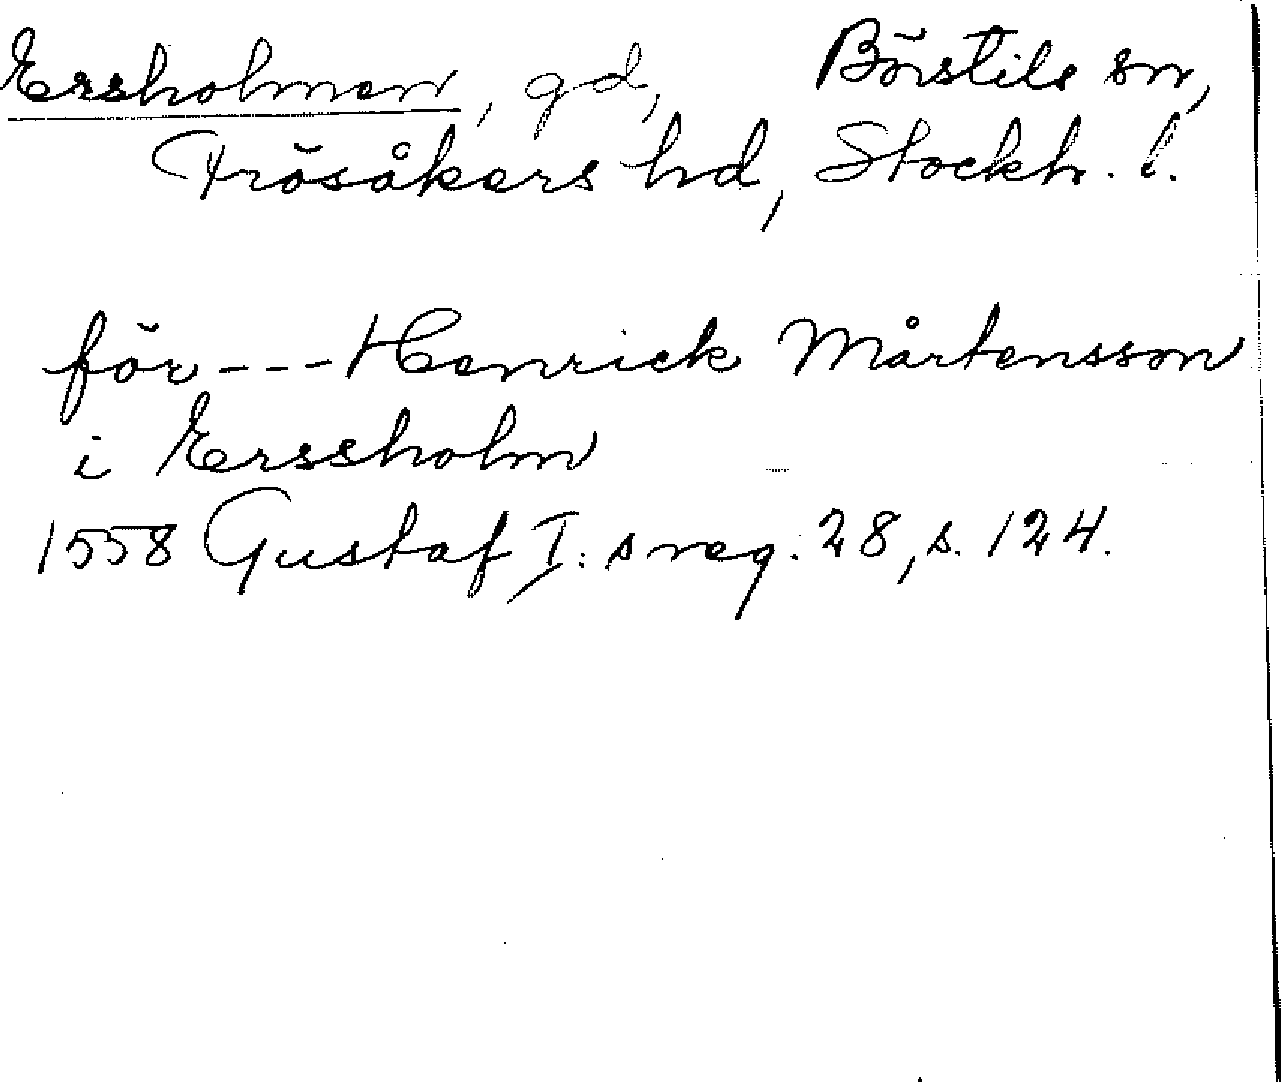 Ersholmen, gd, Börstils sn,
Frösåkers hd, Stockh. l.
för --- Henrick Mårtensson
i Erssholm
1558 Gustaf I:s reg. 28, s. 124.